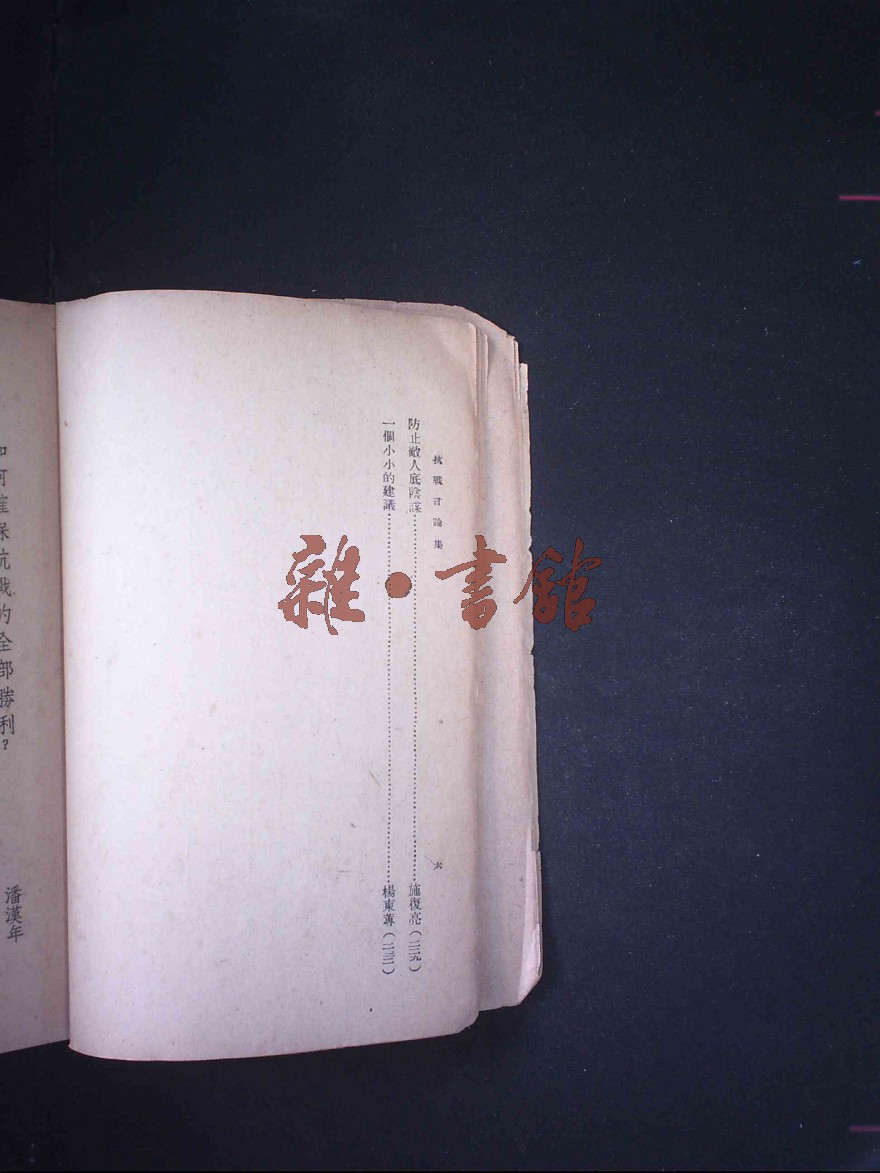 抗戰言論集
六
防止敵人底陰謀……施復亮(二二九)
一個小小的建議……楊東蓴(二三一)
如何確保抗戰的全部勝利?
潘漢年
雜·書館